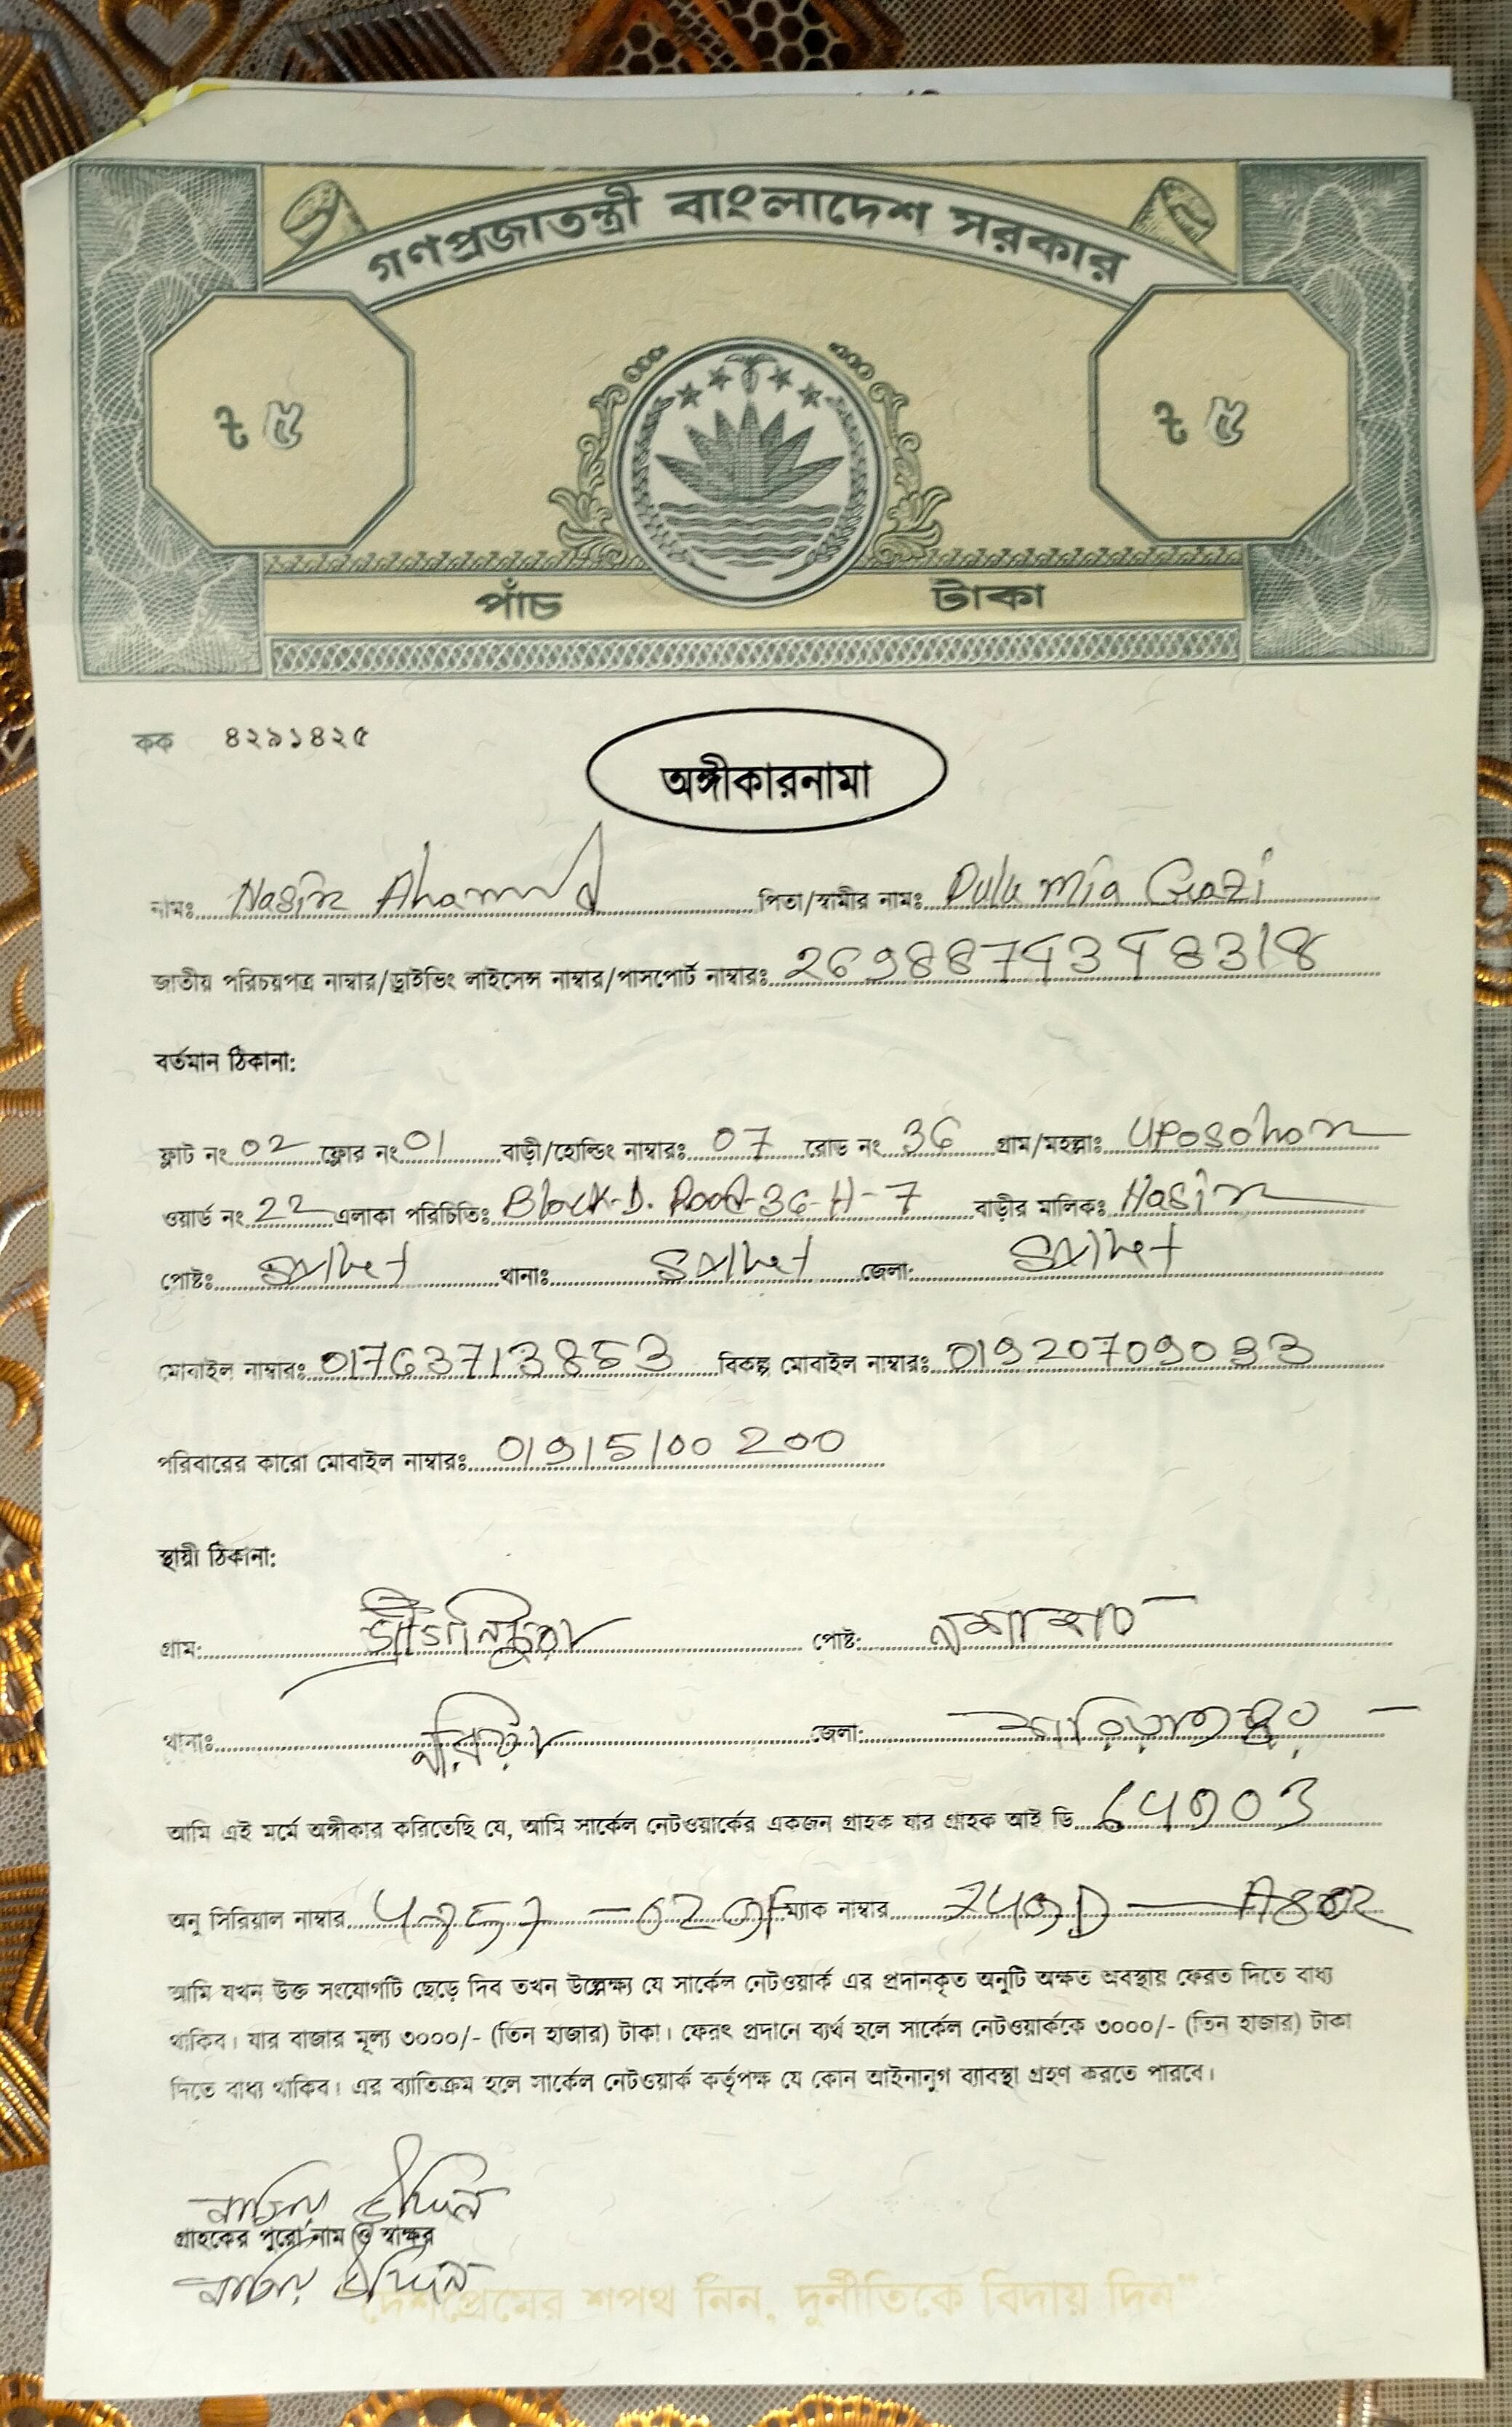 গণপ্রজাতন্ত্রী বাংলাদেশ সরকার
৳ ৫ ৳ ৫
পাঁচ টাকা
কক ৪২৯১৪২৫
অঙ্গীকারনামা
নামঃ Nasir Ahammed পিতা/স্বামীর নামঃ Dulu Mia Gazi
জাতীয় পরিচয়পত্র নাম্বার/ড্রাইভিং লাইসেন্স নাম্বার/পাসপোর্ট নাম্বারঃ
বর্তমান ঠিকানা:
ফ্লাট নং 02 ফ্লোর নং 01 বাড়ী/হোল্ডিং নাম্বারঃ 07 রোড নং 36 গ্রাম/মহল্লাঃ Uposohor
ওয়ার্ড নং 22 এলাকা পরিচিতিঃ Block-D. Road-36-H-7 বাড়ীর মালিকঃ Nasir
পোষ্টঃ Sylhet থানাঃ Sylhet জেলা: Sylhet
মোবাইল নাম্বারঃ 01763713853 বিকল্প মোবাইল নাম্বারঃ 01920709093
পরিবারের কারো মোবাইল নাম্বারঃ 01915100200
স্থায়ী ঠিকানা:
গ্রাম: পোষ্ট:
থানাঃ জেলা: শরিয়তপুর
আমি এই মর্মে অঙ্গীকার করিতেছি যে, আমি সার্কেল নেটওয়ার্কের একজন গ্রাহক যার গ্রাহক আই ডি 64903
অনু সিরিয়াল নাম্বার ম্যাক নাম্বার
আমি যখন উক্ত সংযোগটি ছেড়ে দিব তখন উল্লেক্ষ্য যে সার্কেল নেটওয়ার্ক এর প্রদানকৃত অনুটি অক্ষত অবস্থায় ফেরত দিতে বাধ্য
থাকিব। যার বাজার মূল্য ৩০০০/- (তিন হাজার) টাকা। ফেরৎ প্রদানে ব্যর্থ হলে সার্কেল নেটওয়ার্ককে ৩০০০/- (তিন হাজার) টাকা
দিতে বাধ্য থাকিব। এর ব্যাতিক্রম হলে সার্কেল নেটওয়ার্ক কর্তৃপক্ষ যে কোন আইনানুগ ব্যাবস্থা গ্রহণ করতে পারবে।
নাছির উদ্দিন
গ্রাহকের পুরো নাম ও স্বাক্ষর
নাছির উদ্দিন
দেশপ্রেমের শপথ নিন, দুর্নীতিকে বিদায় দিন"